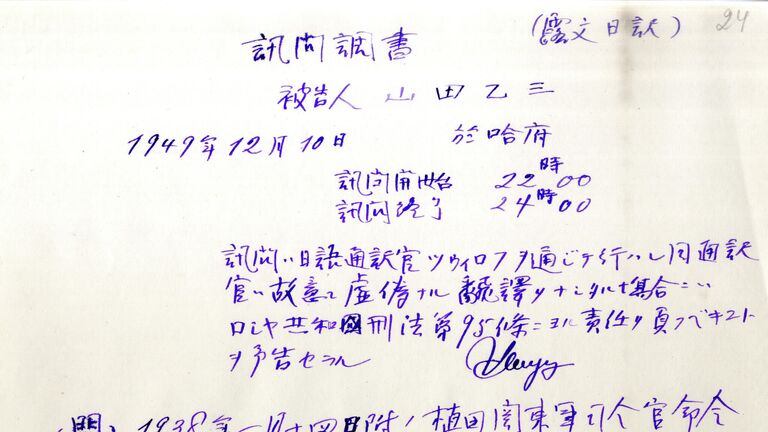 24
(露文日訳)
訊問調書
被告人 山田乙三
1949年12月10日 於哈府
訊問開始 22時00
訊問終了 24時00
訊問ハ日語通訳官ツウィロフヲ通ジテ行ハレ同通訳
官ハ故意ニ虚偽ナル翻譯ヲナシタル場合ニハ
ロシヤ共和国刑法第95條ニヨル責任ヲ負フベキコト
ヲ予告セラル
(問) 1938年一月十四日附ノ植田関東軍司令官命令